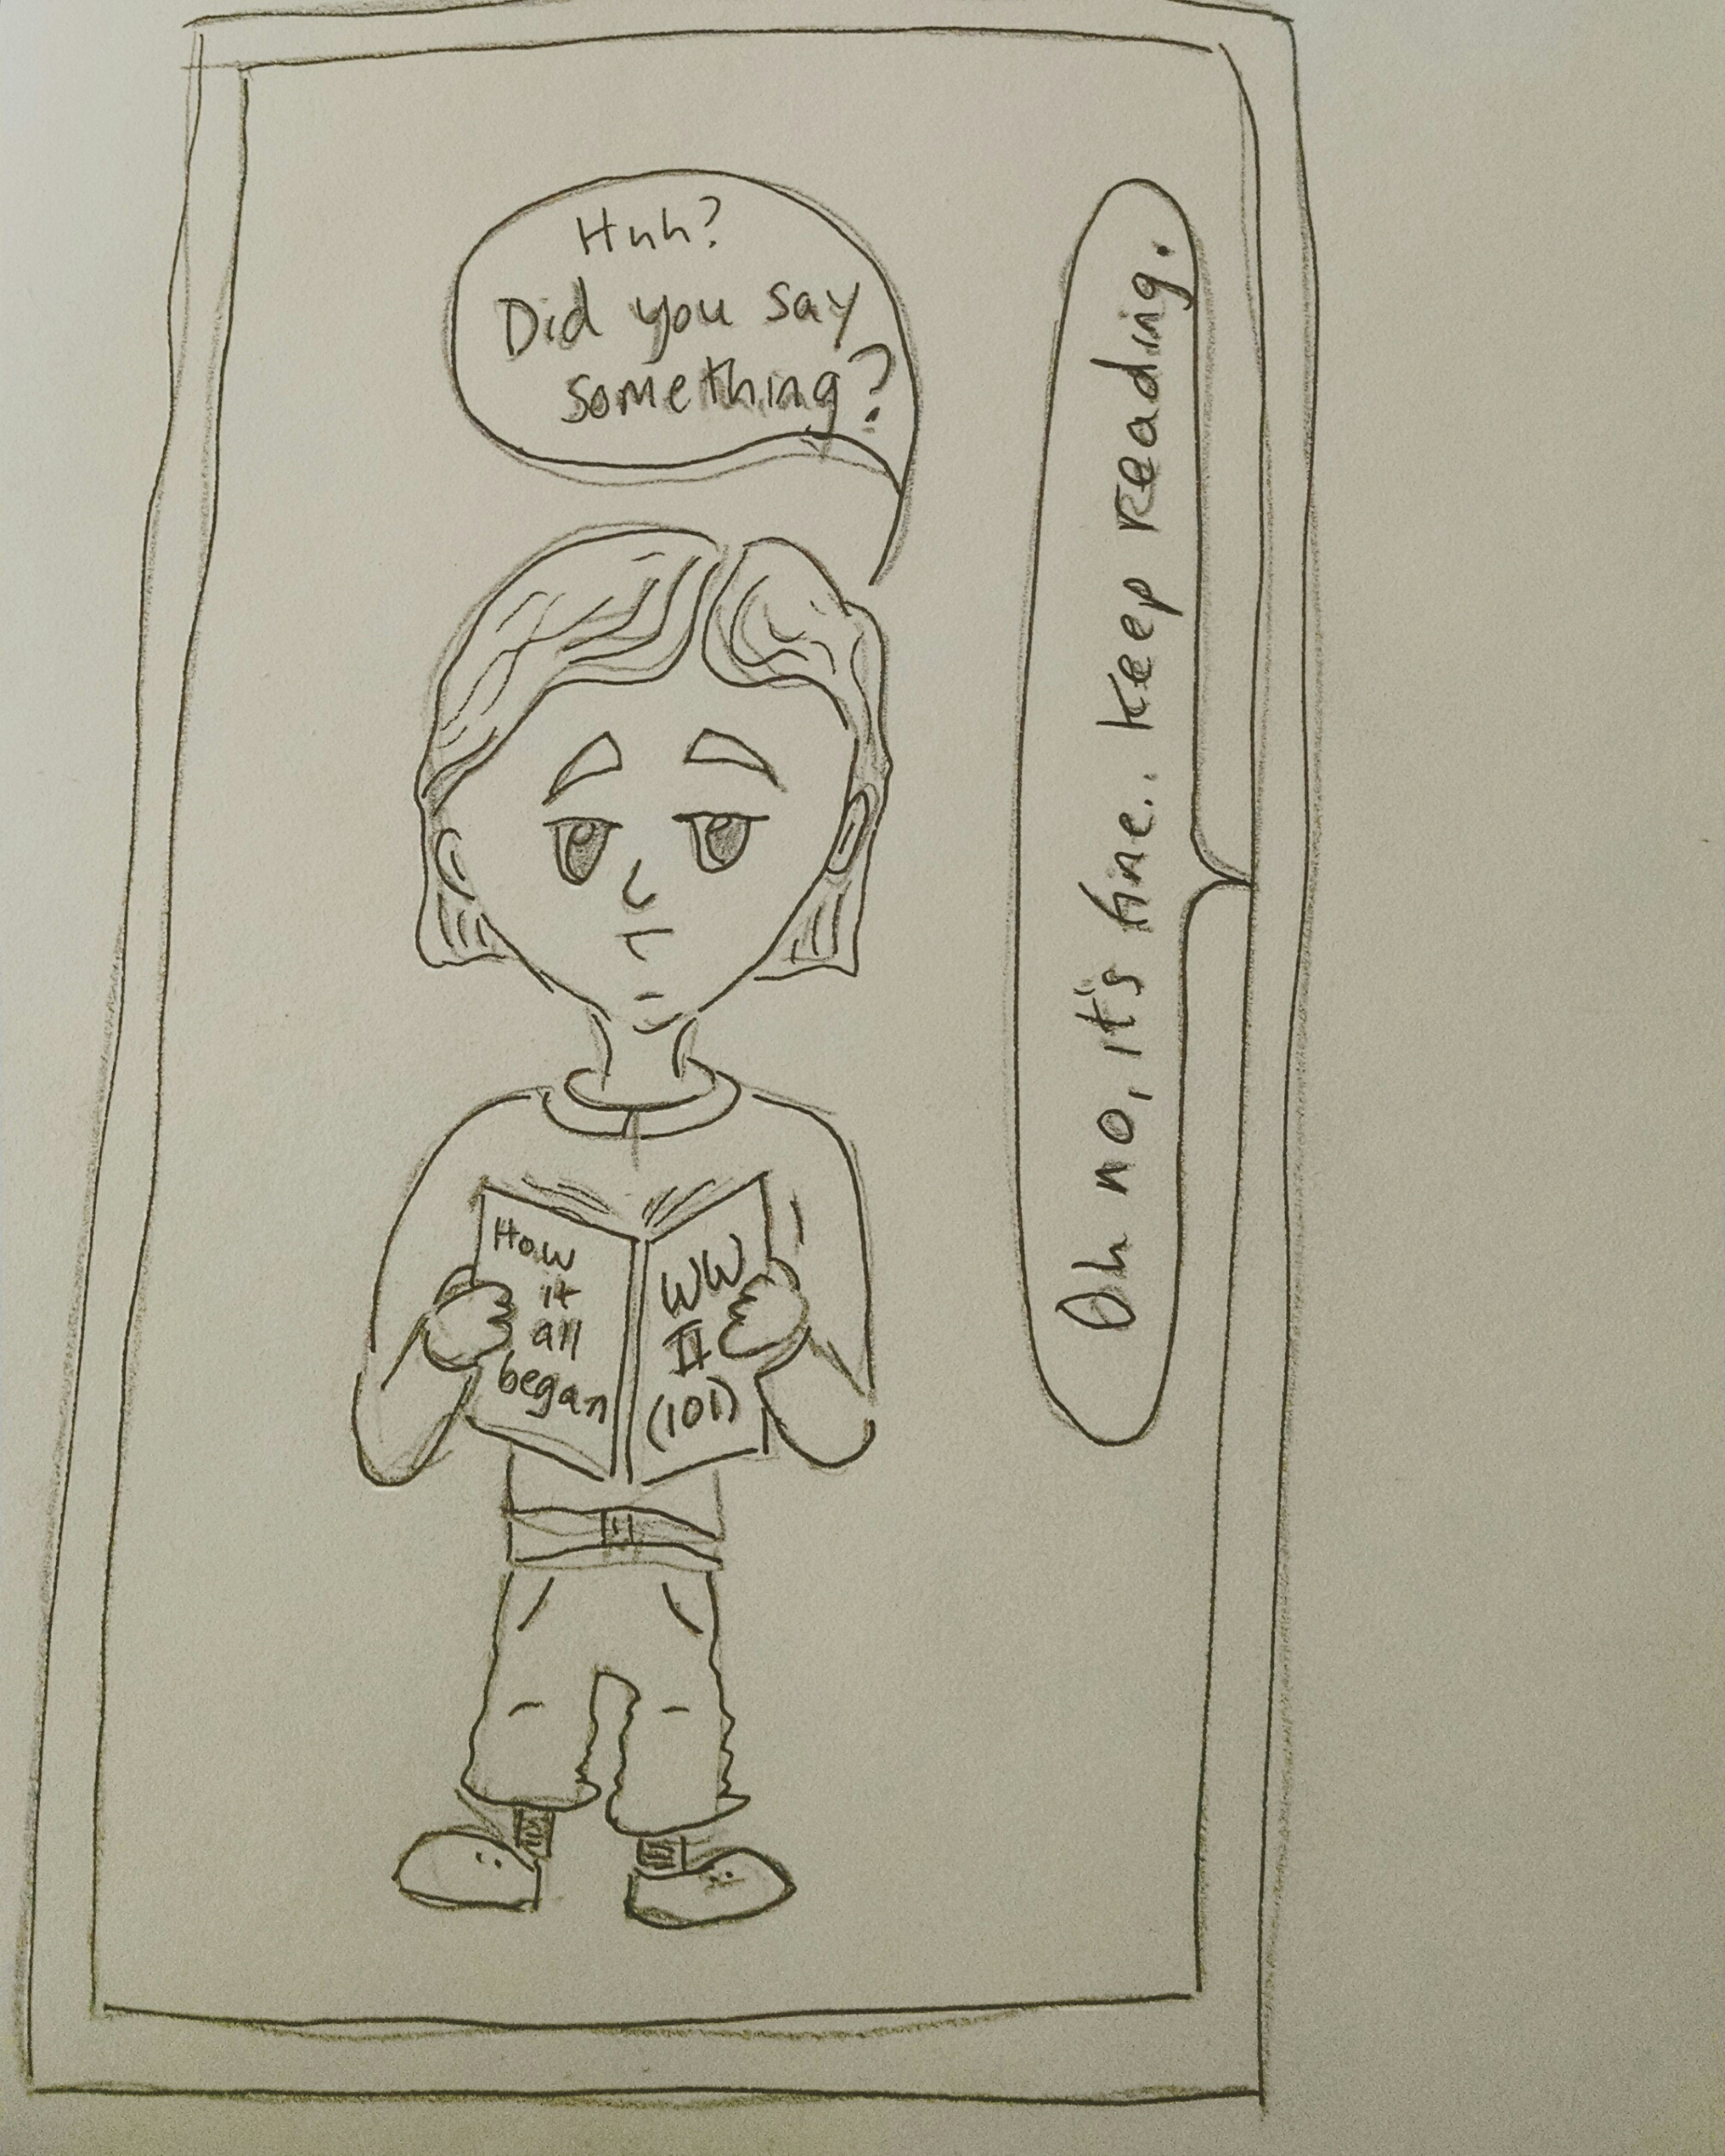 Huh?
Did you say
something?
Oh no, it's fine.. keep reading.
How
it
all
began
WW
II
(101)